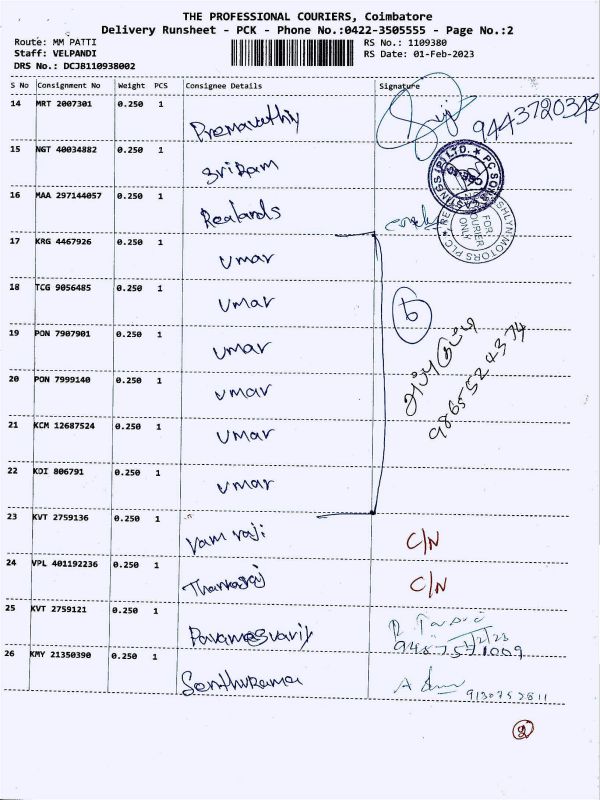 THE PROFESSIONAL COURIERS, Coimbatore
Delivery Runsheet - PCK - Phone No.:0422-3505555 - Page No.:2
Route: MM PATTI RS No.: 1109380
Staff: VELPANDI RS Date: 01-Feb-2023
DRS No.: DCJB110938002
S No Consignment No Weight PCS Consignee Details Signature
14 MRT 2007301 0.250 1 Premavathy 9443720348
15 NGT 40034882 0.250 1 Sriram
16 MAA 297144057 0.250 1 Realands
17 KRG 4467926 0.250 1 Umar
18 TCG 9056485 0.250 1 Umar
6
19 PON 7907901 0.250 1 Umar
9865524374
20 PON 7999140 0.250 1 Umar
21 KCM 12687524 0.250 1 Umar
22 KDI 806791 0.250 1 Umar
23 KVT 2759136 0.250 1 Vam raji C/N
24 VPL 401192236 0.250 1 Thankaraj C/N
25 KVT 2759121 0.250 1
26 KMY 21350390 0.250 1
FOR
COURIER
ONLY